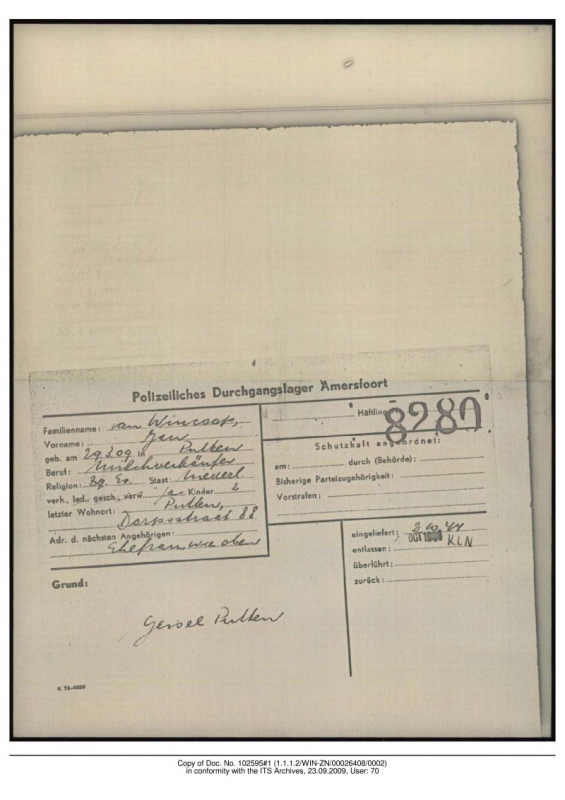 Polizeiliches Durchgangslager Amersfoort
Familienname: van Wincoop,
Vorname: Jan
geb. am 29.3.09 in Putten
Beruf: Milchverkäufer
Religion: Ev. Staat: Niederl.
verh., led., gesch., verw. ja Kinder 2
letzter Wohnort: Putten,
Dorpsstraat 88
Adr. d. nächsten Angehörigen:
Ehefrau, wie oben
Häftling
8280
Schutzhaft angeordnet:
am: durch (Behörde):
Bisherige Parteizugehörigkeit:
Vorstrafen:
eingeliefert: 2.10.44
entlassen: OCT KLN
überführt:
zurück:
Grund:
Geisel Putten
Copy of Doc. No. 102595#1 (1.1.1.2/WIN-ZN/00026408/0002)
in conformity with the ITS Archives, 23.09.2009, User: 70